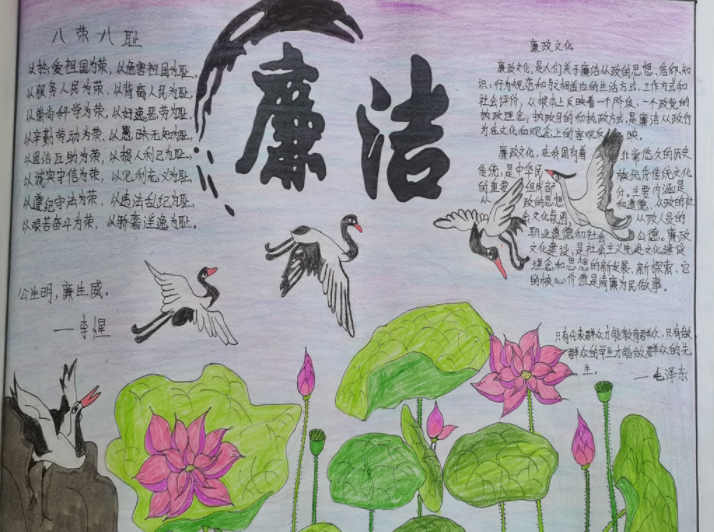 廉洁
八荣八耻
以热爱祖国为荣，以危害祖国为耻、
以服务人民为荣，以背离人民为耻、
以崇尚科学为荣，以
以辛勤劳动为荣，以愚昧无知为耻、
以团结互助为荣，以损人利己为耻、
以诚实守信为荣，以见利忘义为耻、
以遵纪守法为荣，以违法乱纪为耻、
以艰苦奋斗为荣，以骄奢淫逸为耻。
公生明，廉生威。
——李惺
廉政文化
廉政文化，是人们关于廉洁从政的思想、信仰、知
识、行为规范和与之相适应的生活方式、工作方式和
社会评价，从根本上反映着一个阶级、一个政党的
执政理念，执政目的和执政方式，是廉洁从政行
为在文化和观念上的客观反映。
廉政文化，在我国有着 非常悠久的历史
传统，是中华民 族优秀传统文化
的重要组成部 分，主要内涵是
从 政的思想 和道德、从政的社
会文化氛围 从政人员的
职业道德和社会 公德。廉政
文化建设，是社会主义先进文化建设
理念和思想的新发展、新探索，它
的核心价值是清廉为民做事。
只有代表群众才能教育群众，只有做
群众的学生才能做群众的先
生。 ——毛泽东